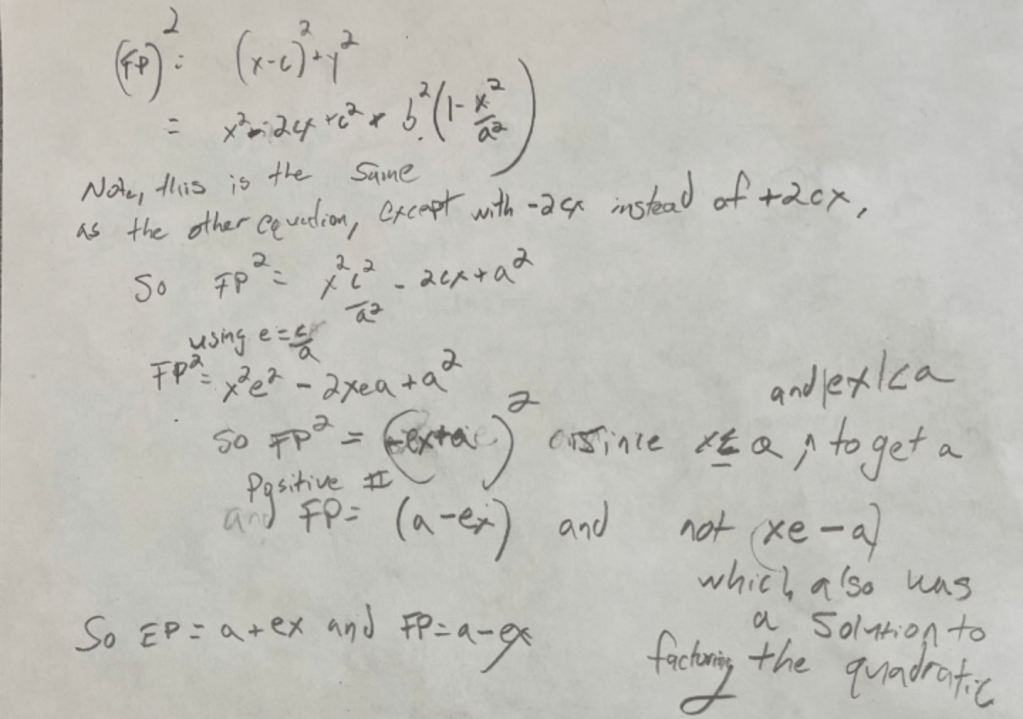 (FP)² = (x-c)²+y²
= x² - 2cx + c² + b²(1 - x²/a²)
Note, this is the same
as the other equation, except with -2cx instead of +2cx,
So FP² = x²c²/a² - 2cx + a²
using e = c/a
FP² = x²e² - 2xea + a²
and |ex| < a
So FP² = (-ex+a)² since x ≤ a ^ to get a
positive #
and FP = (a-ex) and not (xe-a)
which also was
a solution to
factoring the quadratic
So EP = a+ex and FP = a-ex